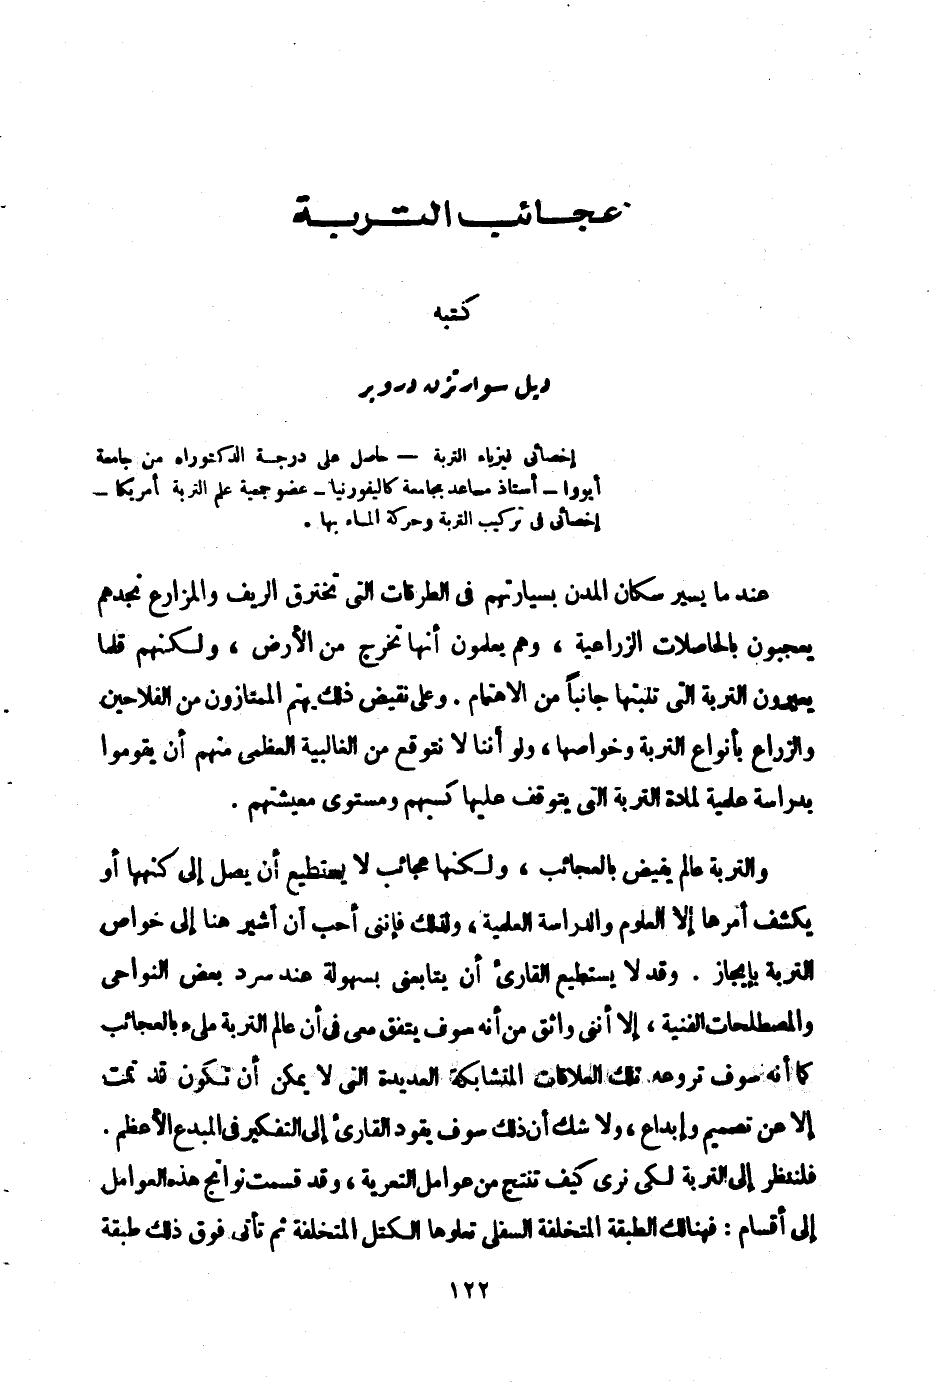 عجائب التربة
كتبه
ديل سوارتزن دروبر
إخصائى فيزياء التربة — حاصل على درجة الدكتوراه من جامعة
أيووا – أستاذ مساعد بجامعة كاليفورنيا – عضو جمعية علم التربة أمريكا –
إخصائى فى تركيب التربة وحركة الماء بها .
عند ما يسير سكان المدن بسيارتهم فى الطرقات التى تخترق الريف والمزارع نجدهم
يعجبون بالحاصلات الزراعية ، وهم يعلمون أنها تخرج من الأرض ، ولكنهم قلما
يعيرون التربة التى تلبثها جانباً من الاهتمام . وعلى نقيض ذلك يهتم الممتازون من الفلاحين
والزراع بأنواع التربة وخواصها ، ولو أننا لا نتوقع من الغالبية العظمى منهم أن يقوموا
بدراسة علمية لمادة التربة التى يتوقف عليها كسبهم ومستوى معيشتهم .
والتربة عالم يفيض بالعجائب ، ولكنها عجائب لا يستطيع أن يصل إلى كنهها أو
يكشف أمرها إلا العلوم والدراسة العلمية ، ولذلك فإننى أحب أن أشير هنا إلى خواص
التربة بإيجاز . وقد لا يستطيع القارئ أن يتابعنى بسهولة عند سرد بعض النواحى
والمصطلحات الفنية ، إلا أننى واثق من أنه سوف يتفق معى فى أن عالم التربة ملىء بالعجائب
كما أنه سوف تروعه تلك العلاقات المتشابكة العديدة التى لا يمكن أن تكون قد تمت
إلا عن تصميم وإبداع ، ولا شك أن ذلك سوف يقود القارئ إلى التفكير فى المبدع الأعظم .
فلننظر إلى التربة لكى نرى كيف تنتج من عوامل التعرية ، وقد قسمت نواتج هذه العوامل
إلى أقسام : فهنالك الطبقة المتخلفة السفلى تعلوها الكتل المتخلفة ثم تأتى فوق ذلك طبقة
١٢٢